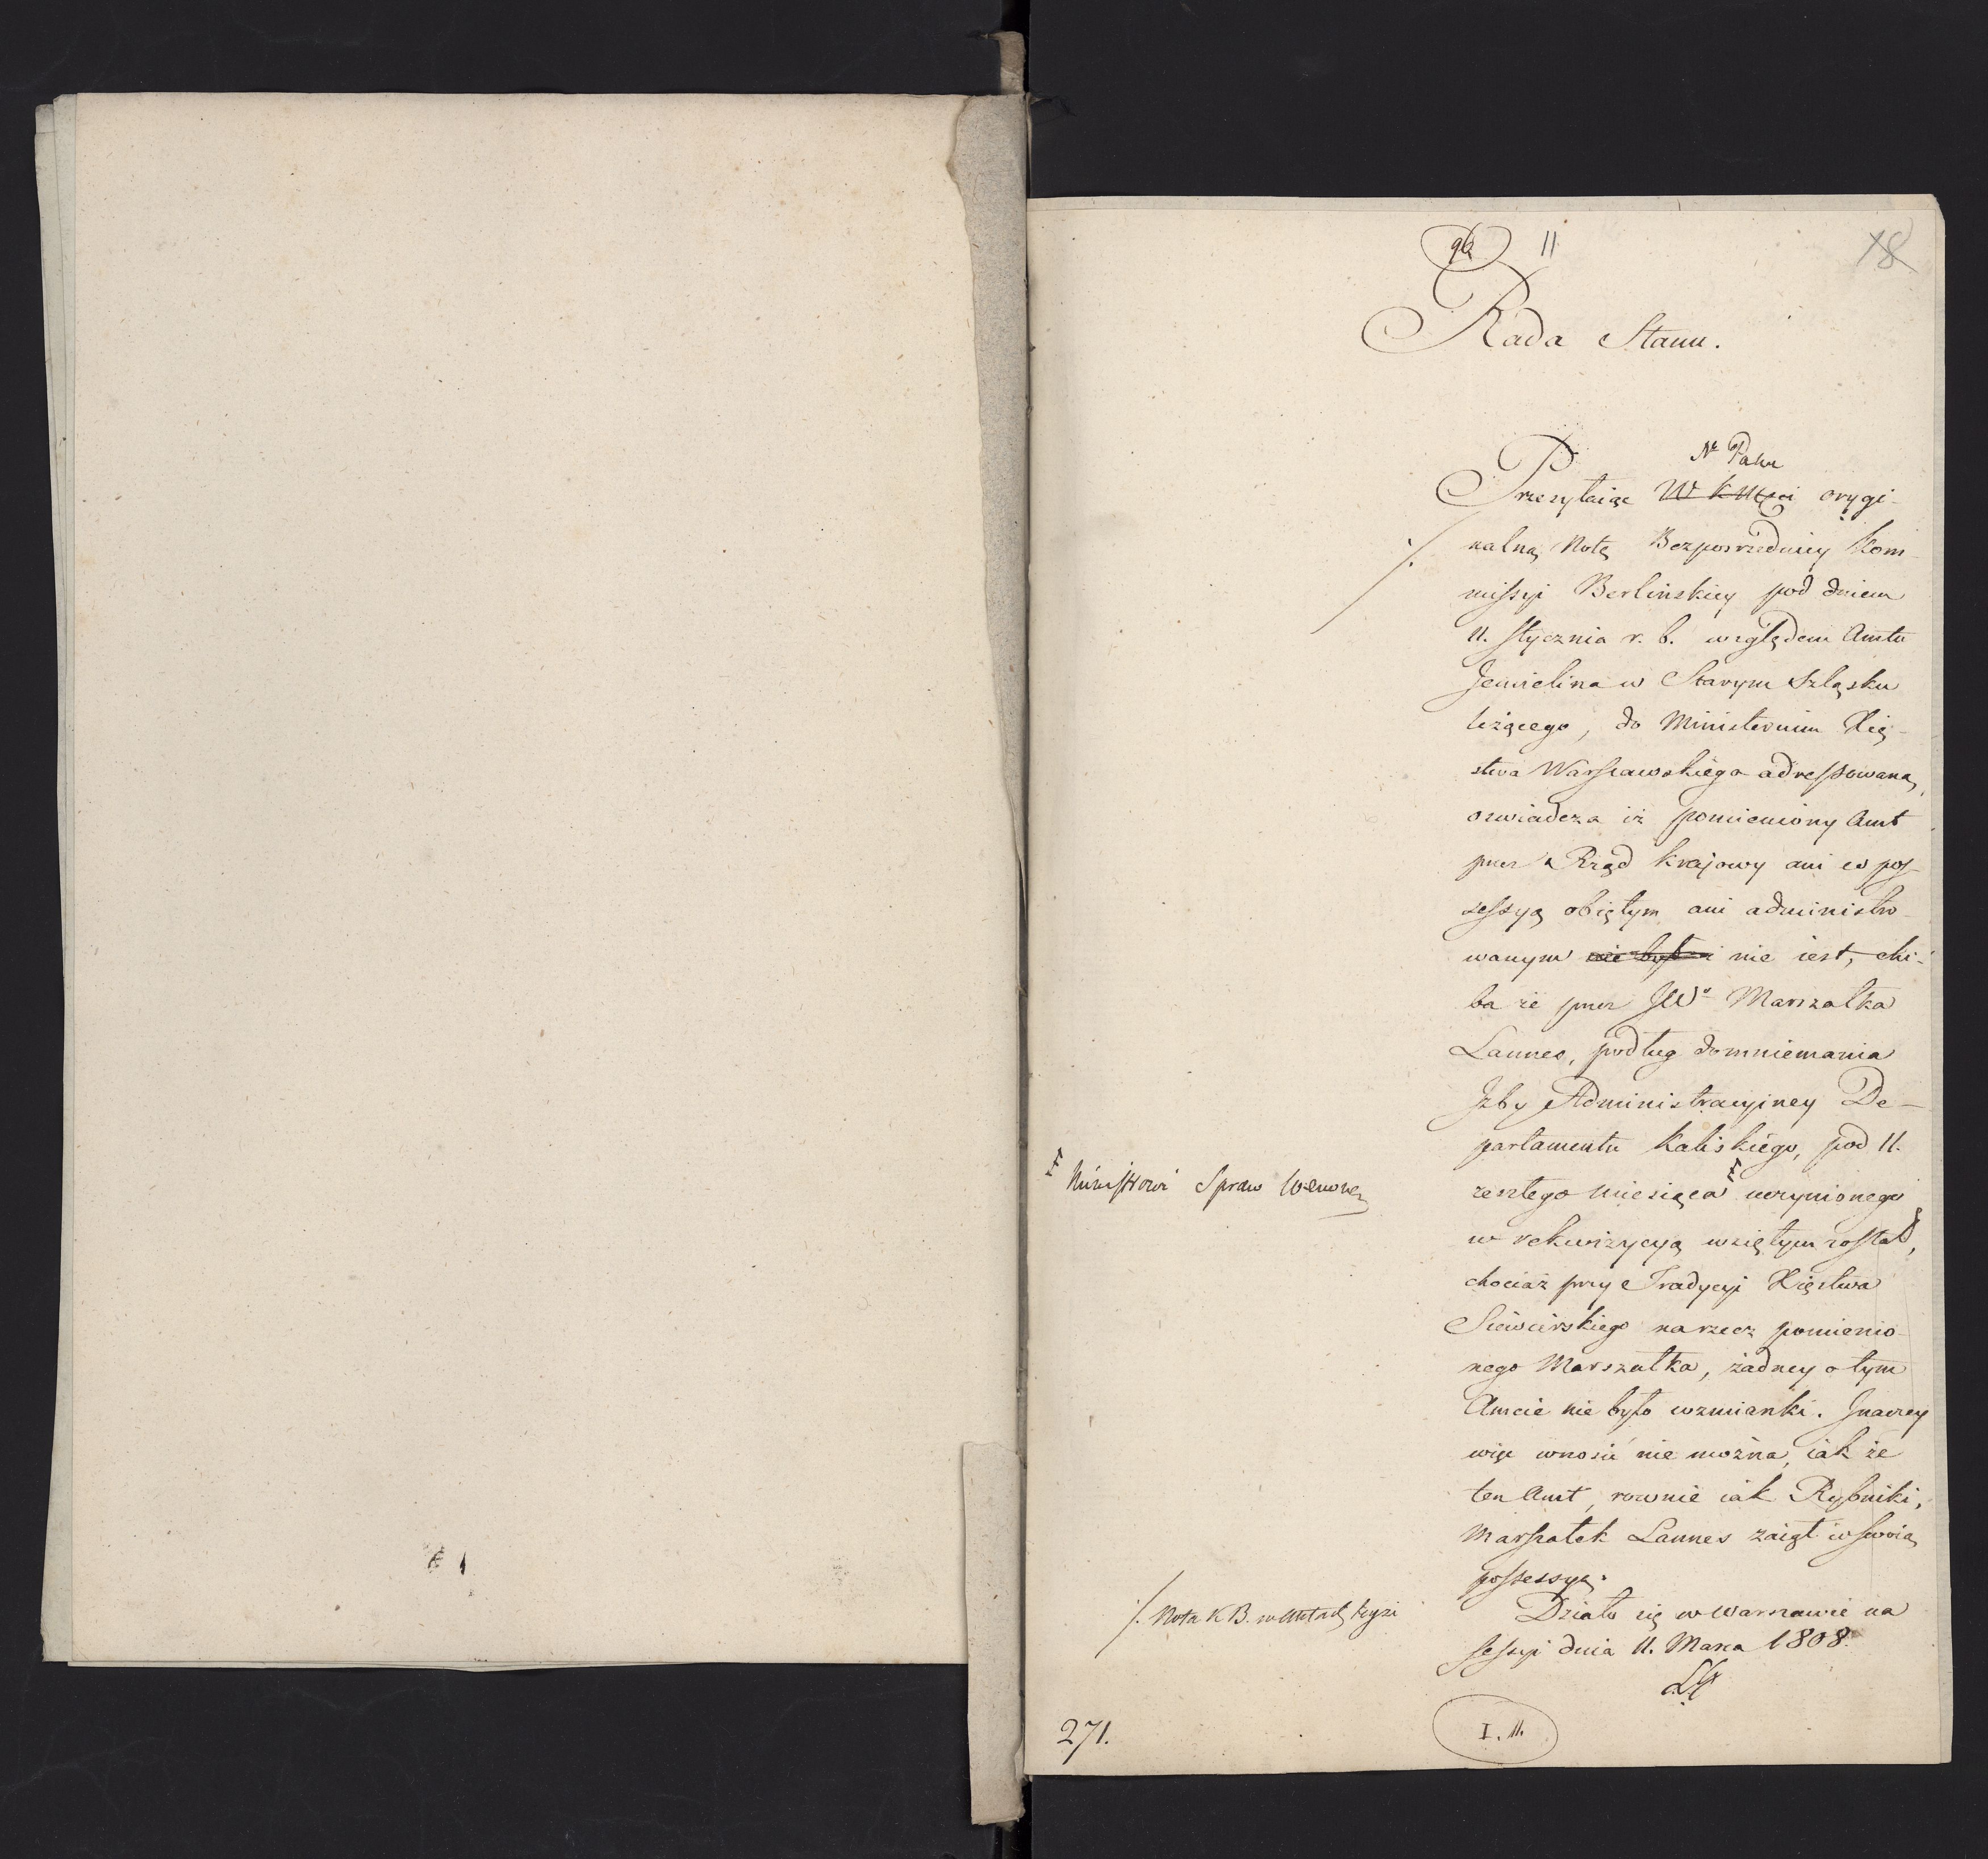 11
18
Rada Stanu.
Nr Panu
Przesyłaiąc W K Mści orygi-
./. nalną Notę Bezpośredniey Kom-
missyi Berlińskiey pod dniem
11. stycznia r. b. względem Amtu
Jemielina w Starym Szląsku
leżącego, do Ministerium Xię-
stwa Warszawskiego adressowaną,
oswiadcza iż pomieniony Amt
przez Rząd krajowy ani w pos-
sessyą obiętym ani administro-
wanym nie był nie iest, chi-
ba że przez JWo Marszałka
Lannes, podług domniemania
Izby Administracyjney De-
partamentu Kaliskiego, pod 11.
zeszłego Miesiąca uczynionego
Ministrowi Spraw Wewnę
w rekwizycyą wziętym został,
chociaż przy Tradycyi Xięstwa
Siewierskiego na rzecz pomienio-
nego Marszałka, żadney o tym
Amcie nie było wzmianki. Inaczey
więc wnosić nie można, iak że
ten Amt, rownie iak Rybniki,
Marszałek Lannes zaiął w swoią
possessyą.
Działo się w Warszawie na
sessyi dnia 11. Marca 1808.
./. Nota K B.
271.
I. 11.